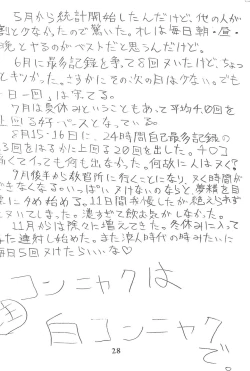 5月から統計開始したんだけど、他の人が
割と少なかったので驚いた。オレは毎日朝・昼・
晩とヤるのがベストだと思うんだけど。
6月に最多記録を樹てる8回ヌいたけど、ちょっ
とキツかった。さすがにその次の日は少ない。でも
一日一回は守ってる。
7月は夏休みということもあって平均4.0回を
上回る好ペースときている。
8月15・16日に、24時間自己最多記録の
回をはるかに上回る20回を出した。チ○コ
痛くてイっても何も出なかった。何故に人はヌく?
7月後半から教習所に行くことになり、ヌく時間が
できなくなる。いっぱいヌけないのならと、夢精を目
に努め始める。11日間我慢したが絶えられず
ヌいてしまった。濃すぎて飲み気がしなかった。
11月からは徐々に増えてきた。冬休みに入って
また連射し始めた。また浪人時代の時みたいに
毎日5回ヌけたらいいな♡
コンニャクは
白コンニャク
で。
28